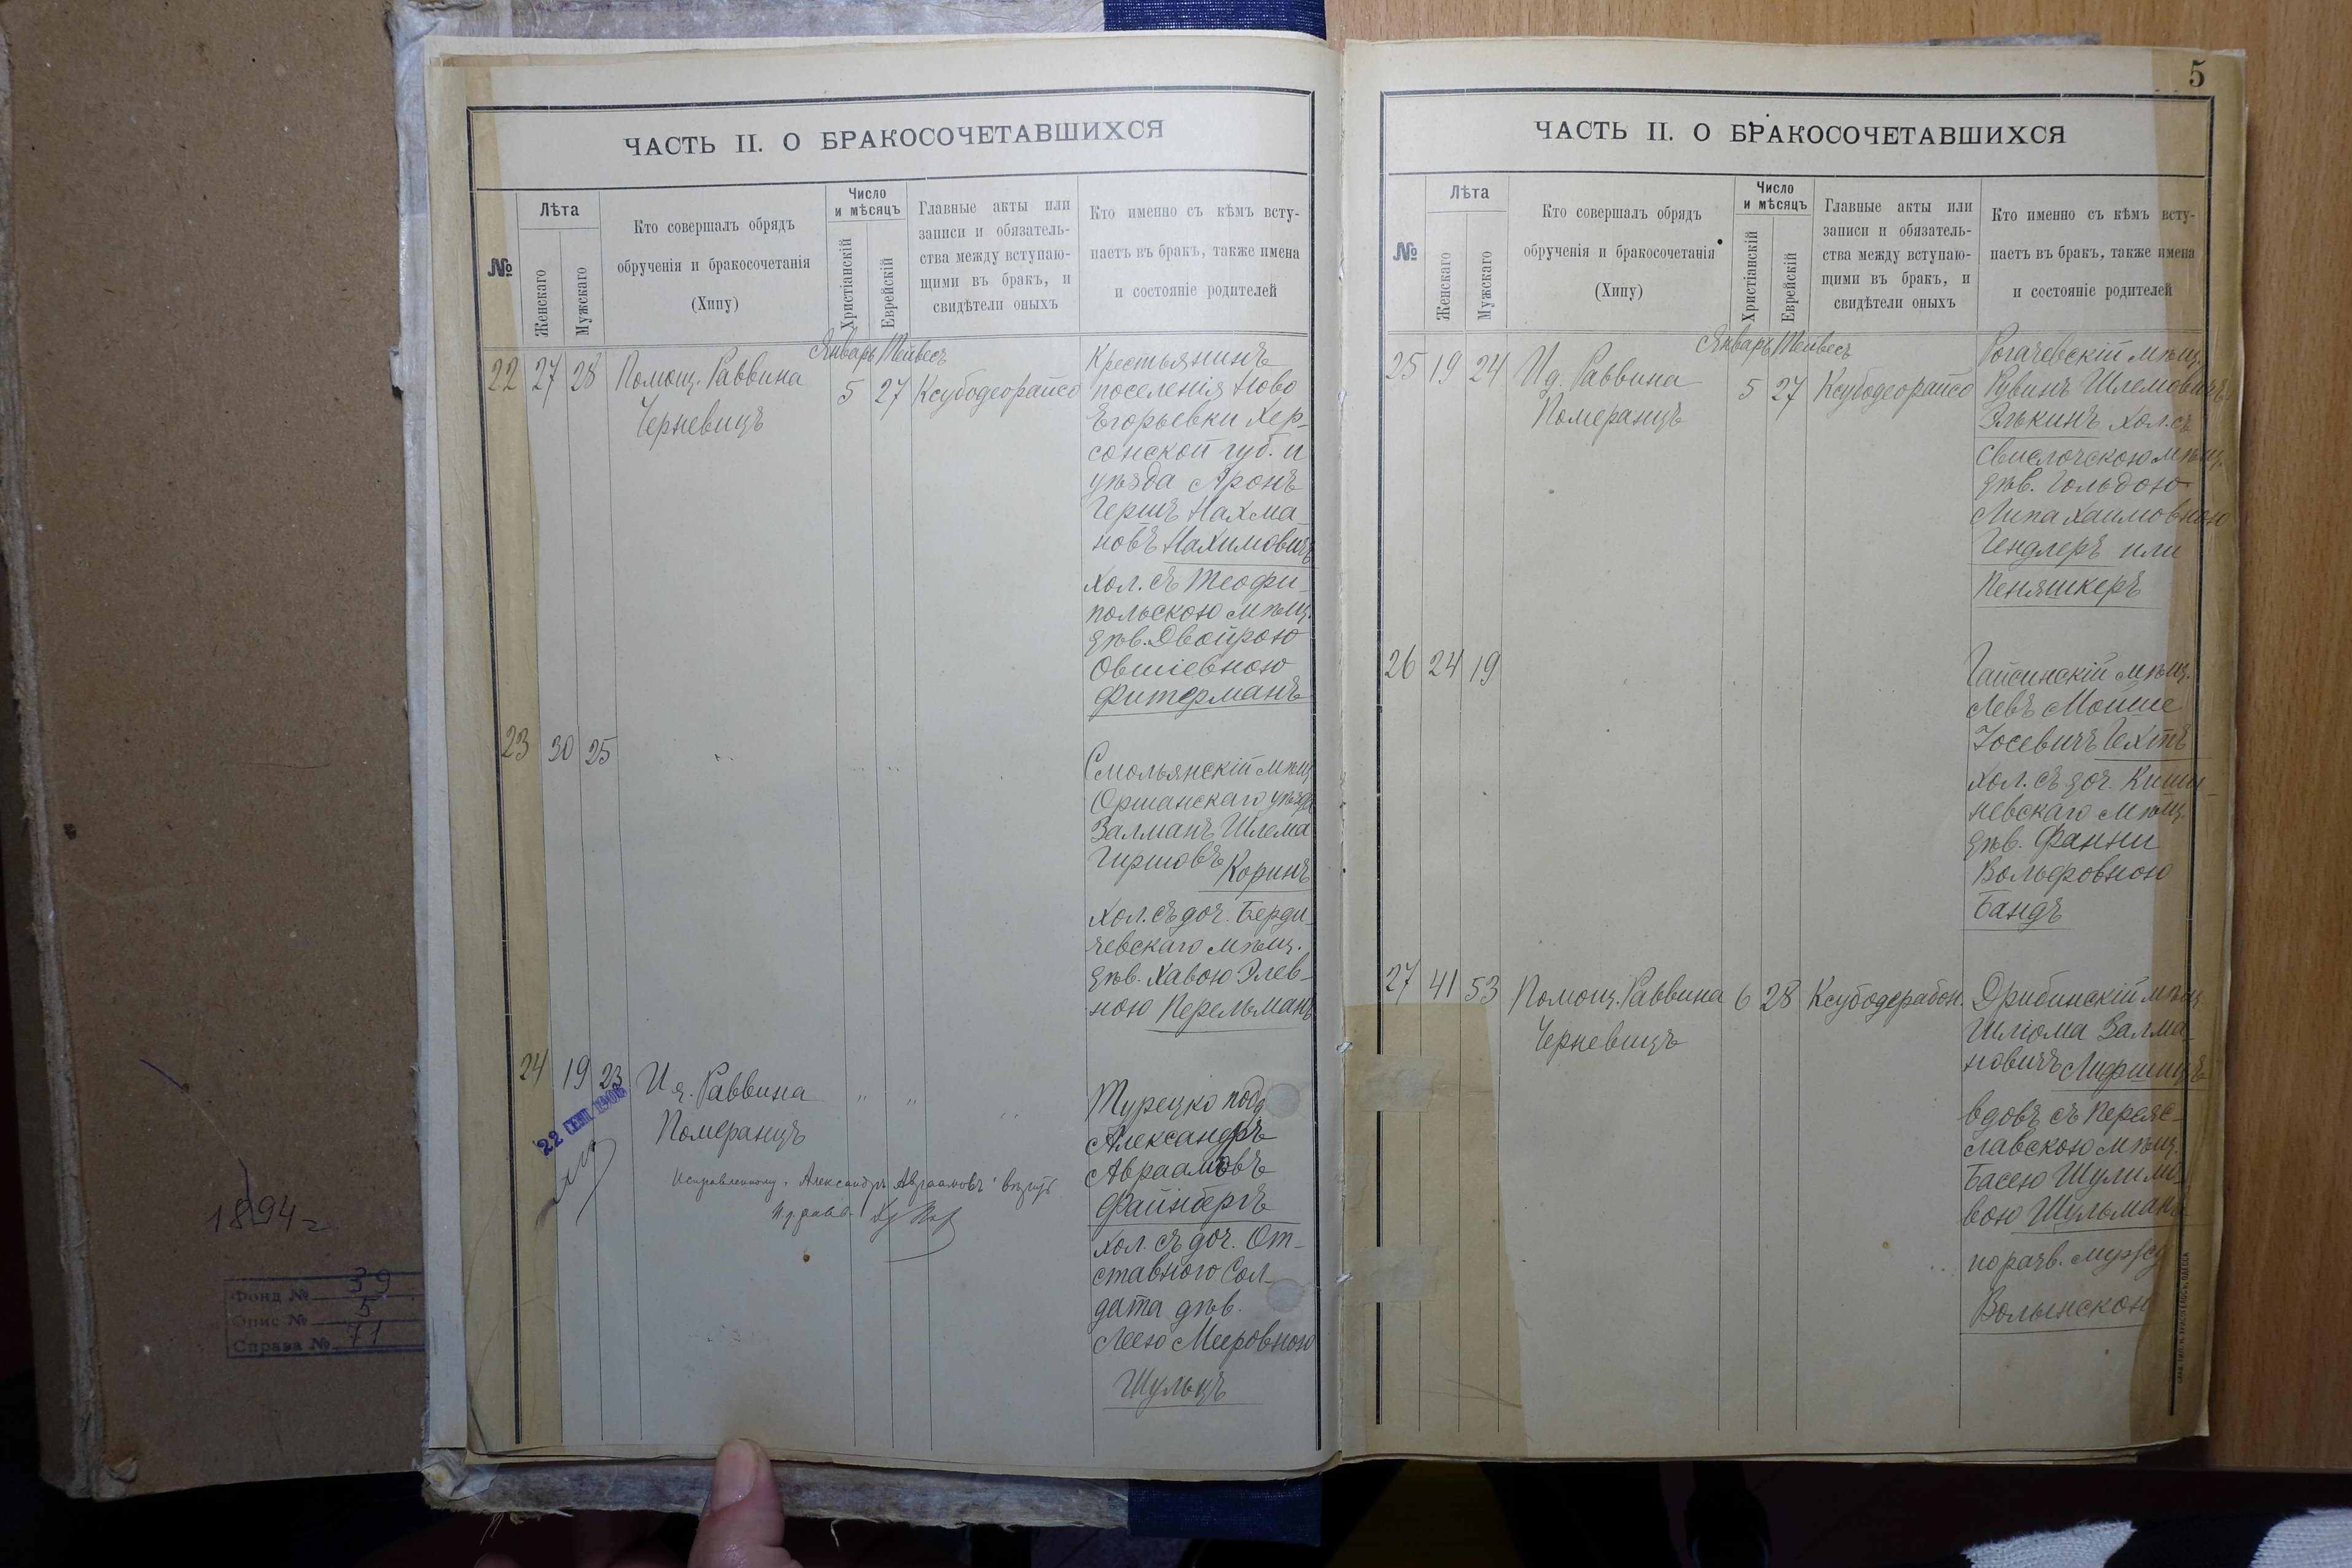 1894 г
Фонд № 39
Опис № 5
Справа № 71
ЧАСТЬ II. О БРАКОСОЧЕТАВШИХСЯ
№
Лѣта
Женскаго
Мужскаго
Кто совершалъ обрядъ
обрученія и бракосочетанія
(Хипу)
Число
и мѣсяцъ
Христіанскій
Еврейскій
Главные акты или
записи и обязатель-
ства между вступаю-
щими въ бракъ, и
свидѣтели оныхъ
Кто именно съ кѣмъ всту-
паетъ въ бракъ, также имена
и состояніе родителей
Январь Тейвесъ
22 27 28 Помощ. Раввина 5 27 Ксубодеорайсо
Черневицъ
Крестьянинъ
поселенія Ново
Егорьевки Хер-
сонской губ. и
уѣзда Аронъ
Гершъ Нахма-
новъ Нахимовичъ
хол. съ Теофи-
польскою мѣщ.
дѣв. Двойрою
Овшіевною
Фитерманъ
23 30 25 " " " "
Смольянскій мѣщ
Оршанскаго уѣзда
Залманъ Шлема
Гиршовъ Коринъ
хол. съ доч. Берди-
чевскаго мѣщ.
дѣв. Хавою Элев-
ною Перельманъ
24 19 23 И д. Раввина " " "
Померанцъ
22 СЕНТ 1906
Исправленному "Александръ Авраамовъ" вѣрить
Турецко подд
Александръ
Авраамовъ
Файнбергъ
хол. съ доч. От-
ставного Сол-
дата дѣв.
Леею Мееровною
Шульцъ
5
ЧАСТЬ II. О БРАКОСОЧЕТАВШИХСЯ
№
Лѣта
Женскаго
Мужскаго
Кто совершалъ обрядъ
обрученія и бракосочетанія
(Хипу)
Число
и мѣсяцъ
Христіанскій
Еврейскій
Главные акты или
записи и обязатель-
ства между вступаю-
щими въ бракъ, и
свидѣтели оныхъ
Кто именно съ кѣмъ всту-
паетъ въ бракъ, также имена
и состояніе родителей
Январь Тейвесъ
25 19 24 И д. Раввина 5 27 Ксубодеорайсо
Померанцъ
Рогачевскій мѣщ.
Рувинъ Шлемовичъ
Элькинъ хол. съ
Свислочскою мѣщ.
дѣв. Гольдою
Липа Хаимовною
Гендлеръ или
Пеняшкеръ
26 24 19
Гайсинскій мѣщ.
Левъ Мойше
Іосевичъ Гехтъ
хол. съ доч. Киши-
невскаго мѣщ.
дѣв. Фанни
Вольфовною
Бандъ
27 41 53 Помощ. Раввина 6 28 Ксубодерабон.
Черневицъ
Дрибинскій мѣщ
Шліома Залма-
новичъ Лифшицъ
вдовъ съ Переяс-
лавскою мѣщ.
Басею Шулимо-
вою Шульманъ
по разв. мужу
Волынскою